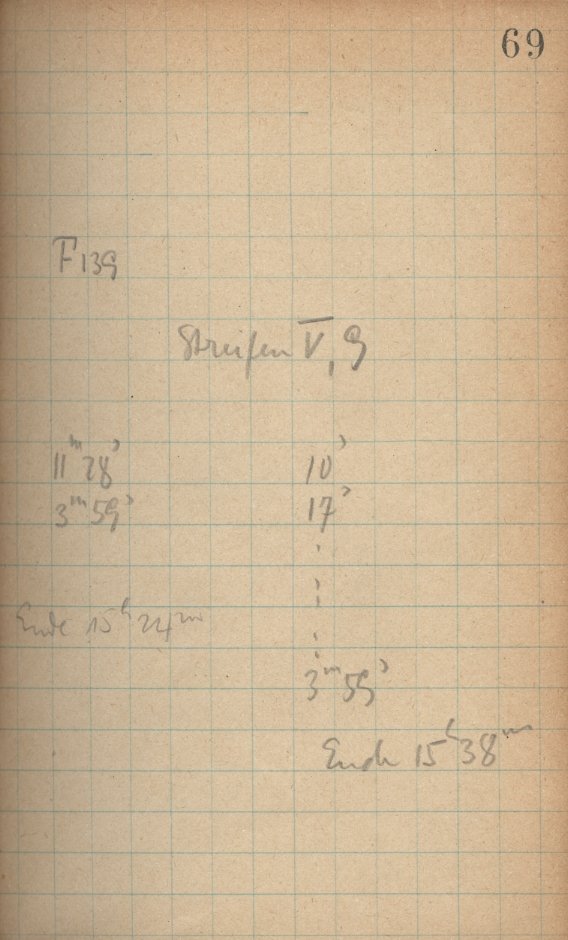 69
F 139
Streifen V, 9
11ᵐ 28ˢ 10ˢ
3ᵐ 59ˢ 17ˢ
⋮
3ᵐ 59ˢ
Ende 15ʰ 24ᵐ
Ende 15ʰ 38ᵐ